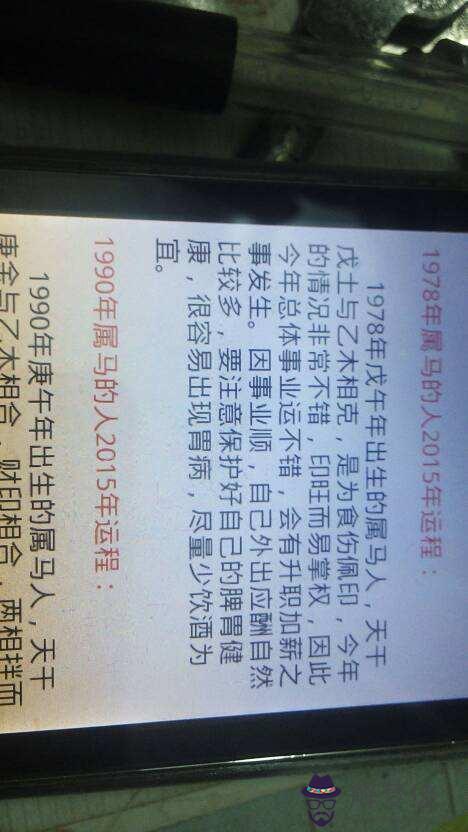 1978年属马的人2015年运程：
1978年戊午年出生的属马人，天干
戊土与乙木相克，是为食伤佩印，今年
的情况非常不错，印旺而易掌权，因此
今年总体事业运不错，会有升职加薪之
事发生。因事业顺，自己外出应酬自然
比较多，要注意保护好自己的脾胃健
康，很容易出现胃病，尽量少饮酒为
宜。
1990年属马的人2015年运程：
1990年庚午年出生的属马人，天干
庚金与乙木相合，财印相合，两相拌而